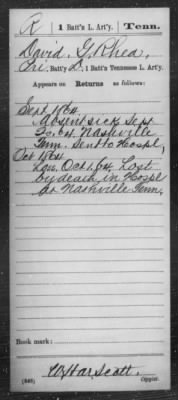 R | 1 Batt'n L. Art'y. | Tenn.
David G. Rhea,
Pri, Batt'y D, 1 Batt'n Tennessee L. Art'y.
Appears on Returns as follows:
Sept 1864
Absent sick Sept
64. Nashville
Tenn. Sent to Hospl,
Oct 1864
Oct 1, 64 Lost
by death in Hospl
at Nashville Tenn.
Book mark:
(546)
Copyist.